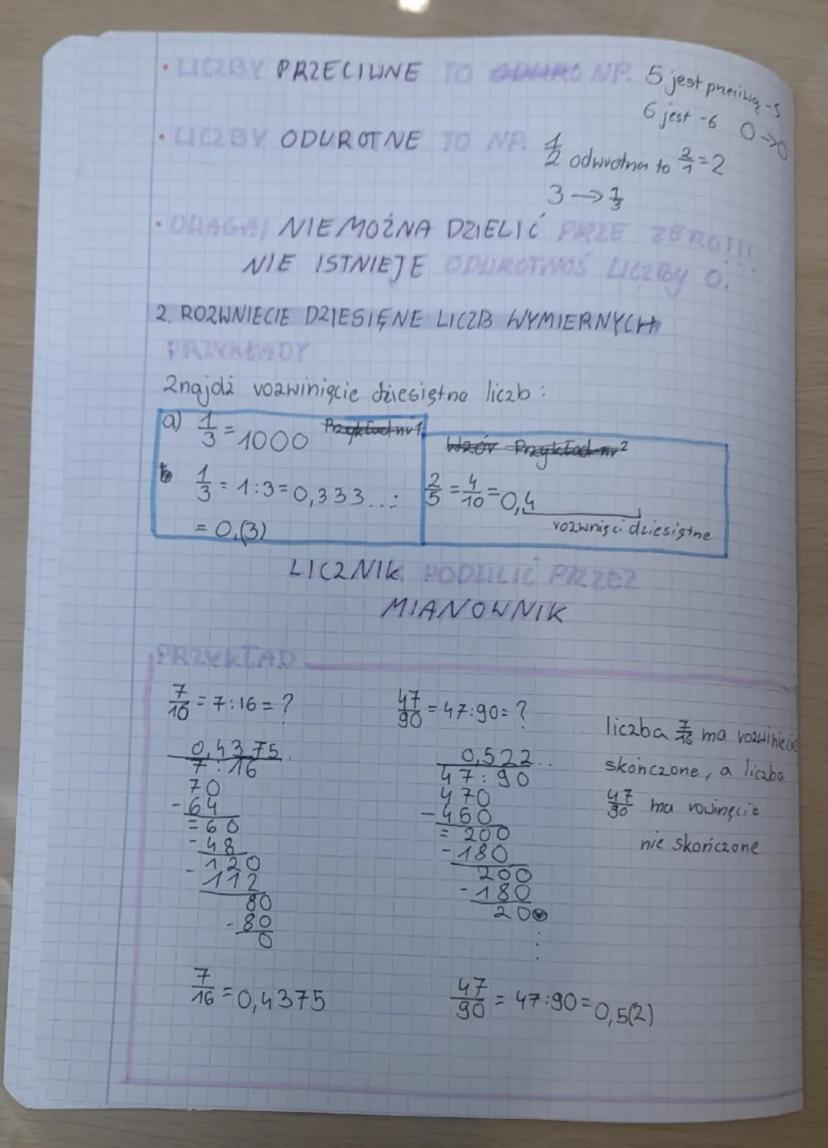 • LICZBY PRZECIWNE TO NP. 5 jest przeciwną -5
6 jest -6 0→0
• LICZBY ODUROTNE TO NP. 1/2 odwrotna to 2/1=2
3 → 1/3
• URAGA! NIEMOŻNA DZIELIĆ PRZE ZERO!!!
NIE ISTNIEJE ODUROTNOŚ LICZBY 0.
2. ROZWNIECIE DZIESIĘNE LICZB WYMIERNYCH
PRZYKŁADY
Znajdź rozwinięcie dziesiętne liczb:
a) 1/3=1000 Przykład nr 1
b 1/3=1:3=0,333...
=0,(3)
Wzór Przykład nr 2
2/5=4/10=0,4
rozwnięci dziesiętne
LICZNIK PODZILIĆ PRZEZ
MIANOWNIK
PRZYKŁAD
7/16=7:16=?
0,4375
7:16
70
-64
=60
-48
120
-112
80
-80
0
7/16=0,4375
47/90=47:90=?
0,522..
47:90
470
-450
=200
-180
200
-180
200
47/90=47:90=0,5(2)
liczba 7/16 ma rozwinięcie
skończone, a liczba
47/90 ma rowinęcie
nie skończone